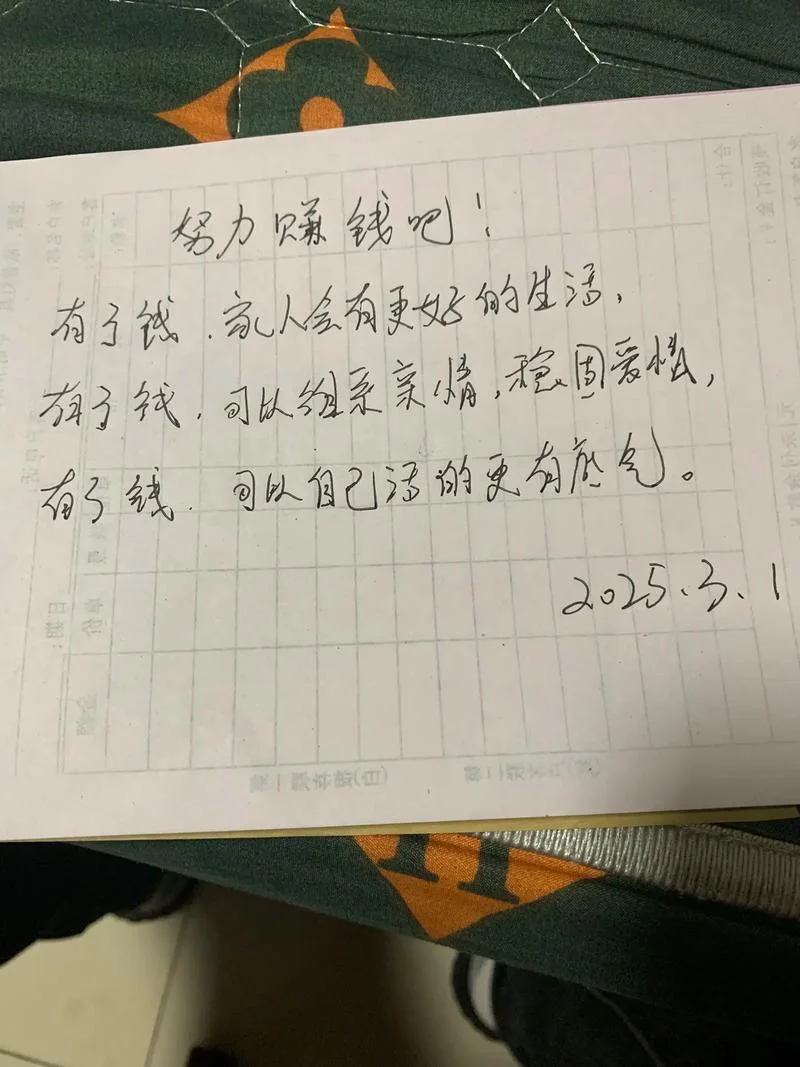 努力赚钱吧！
有了钱．家人会有更好的生活，
有了钱．可以维系亲情，稳固爱情，
有了钱．可以自己活的更有底气。
2025.3.1